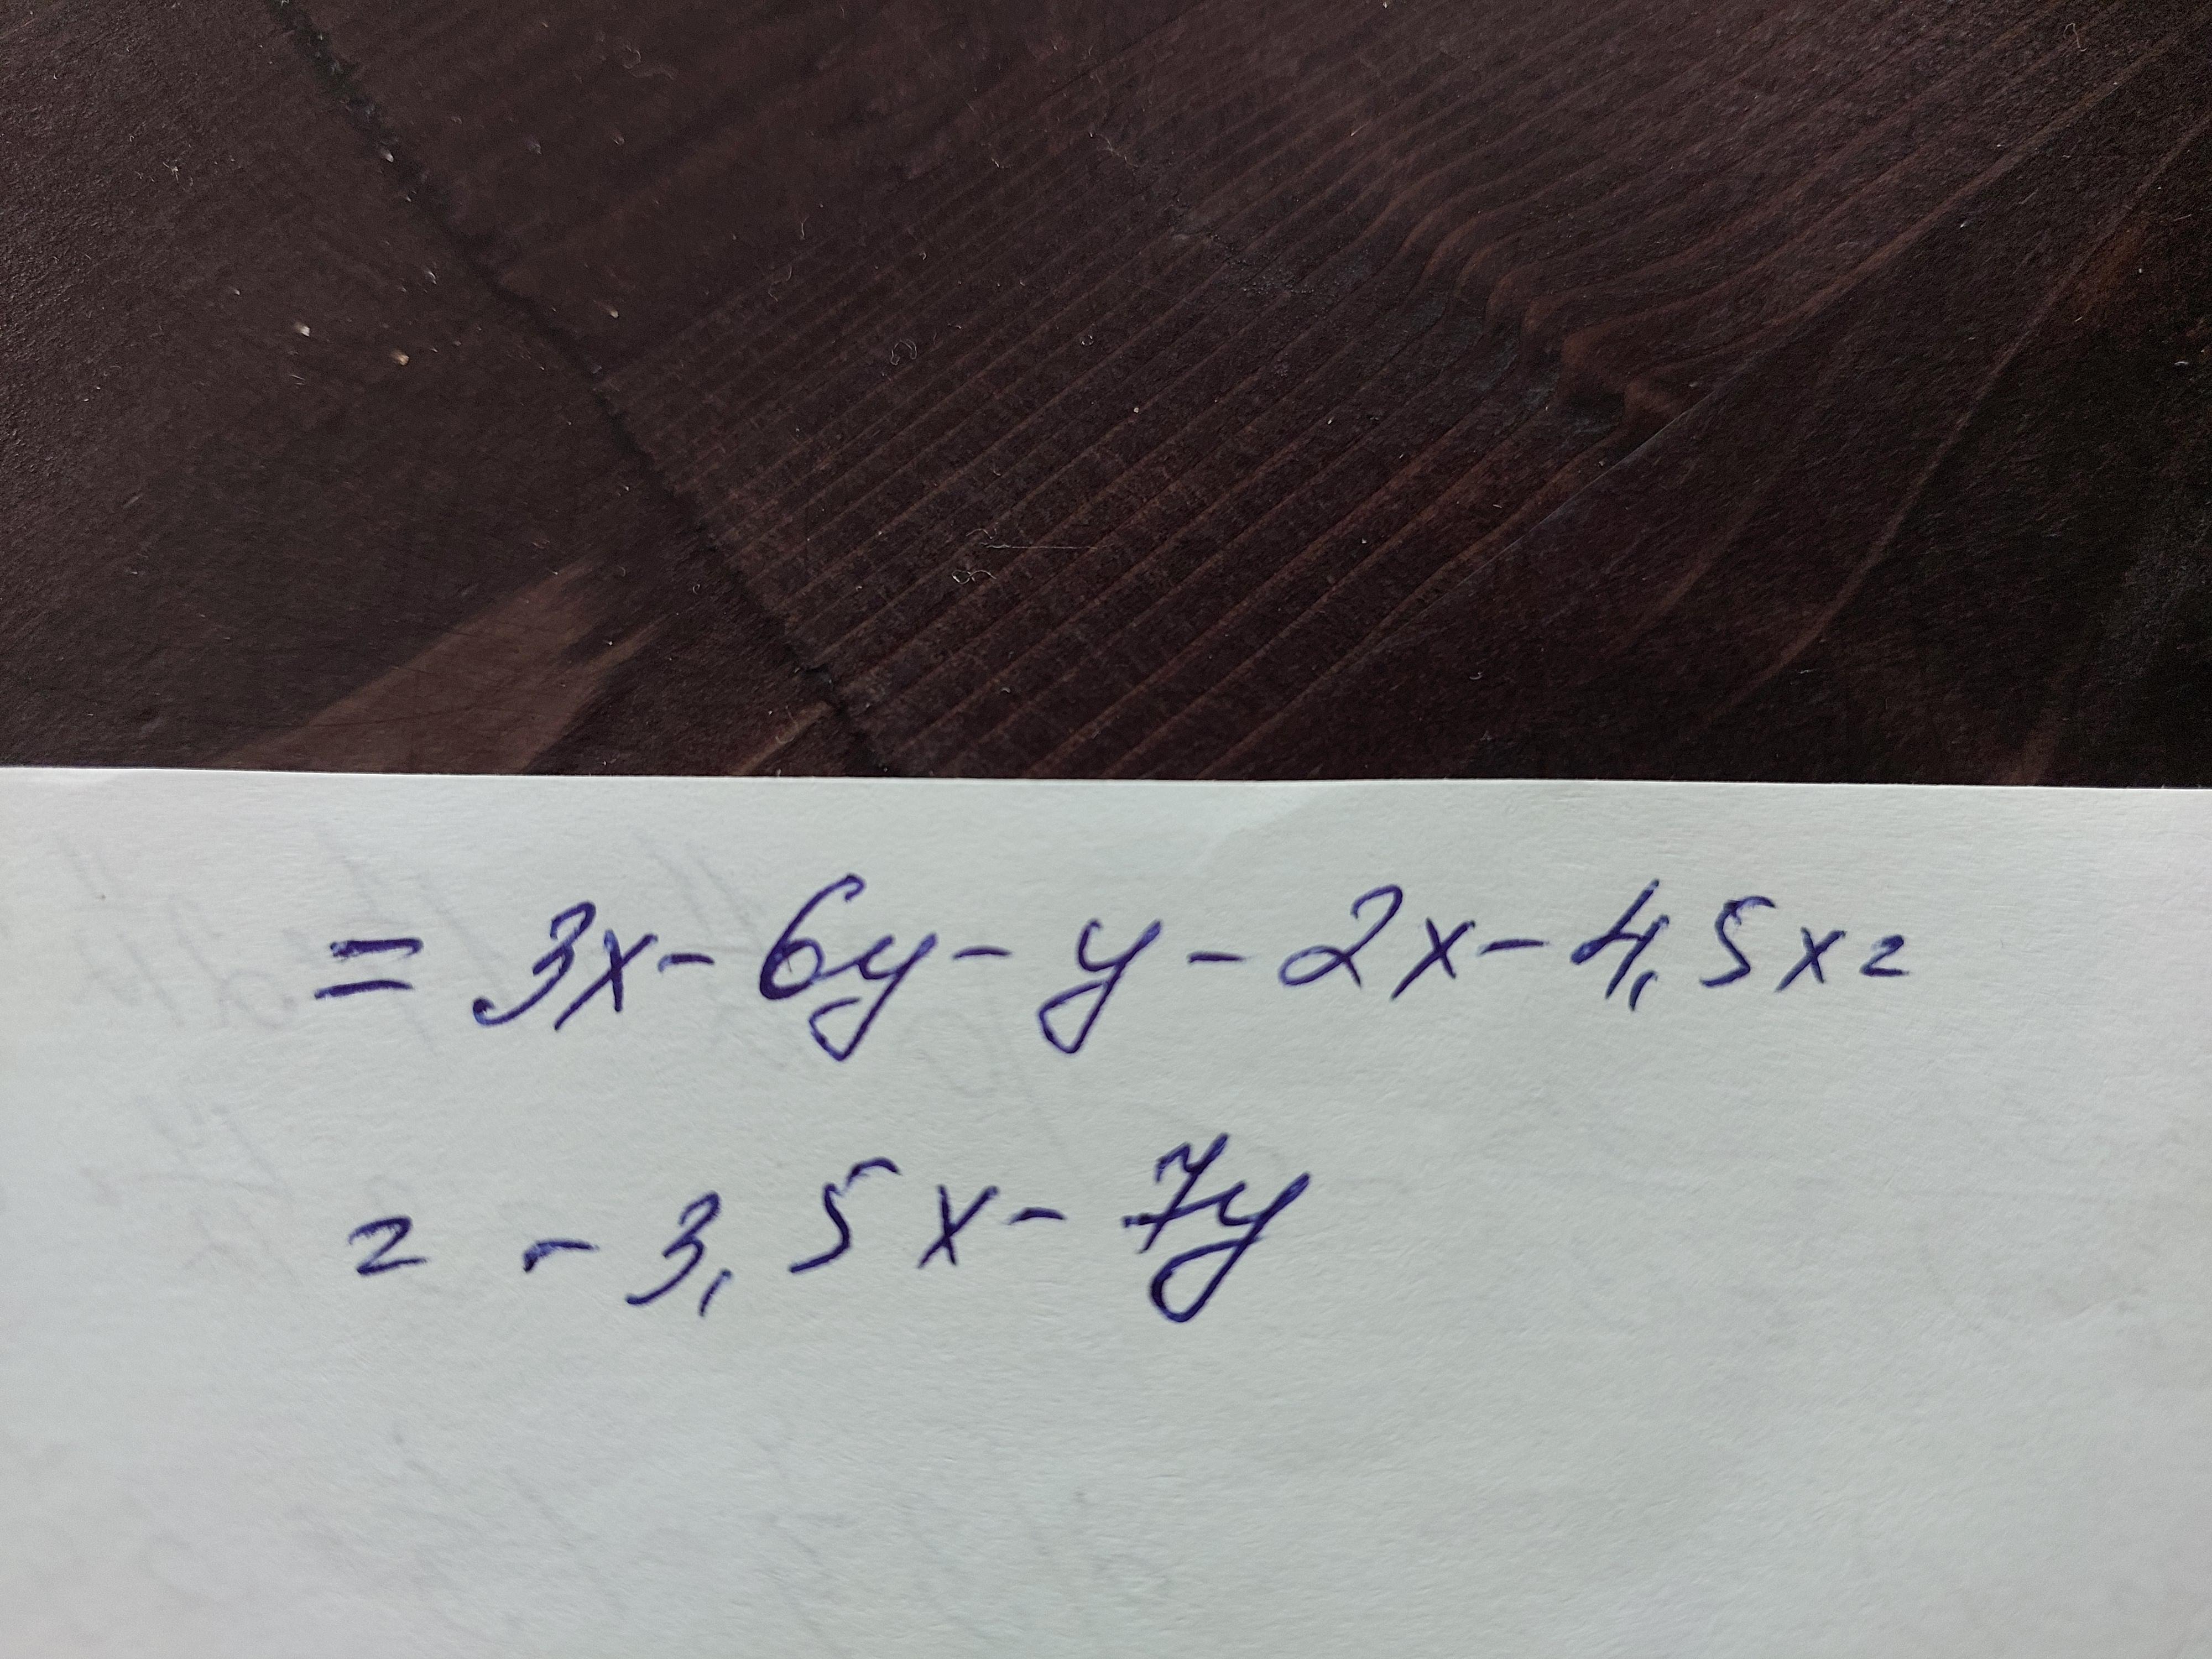 = 3x - 6y - y - 2x - 4,5x =
= - 3,5x - 7y